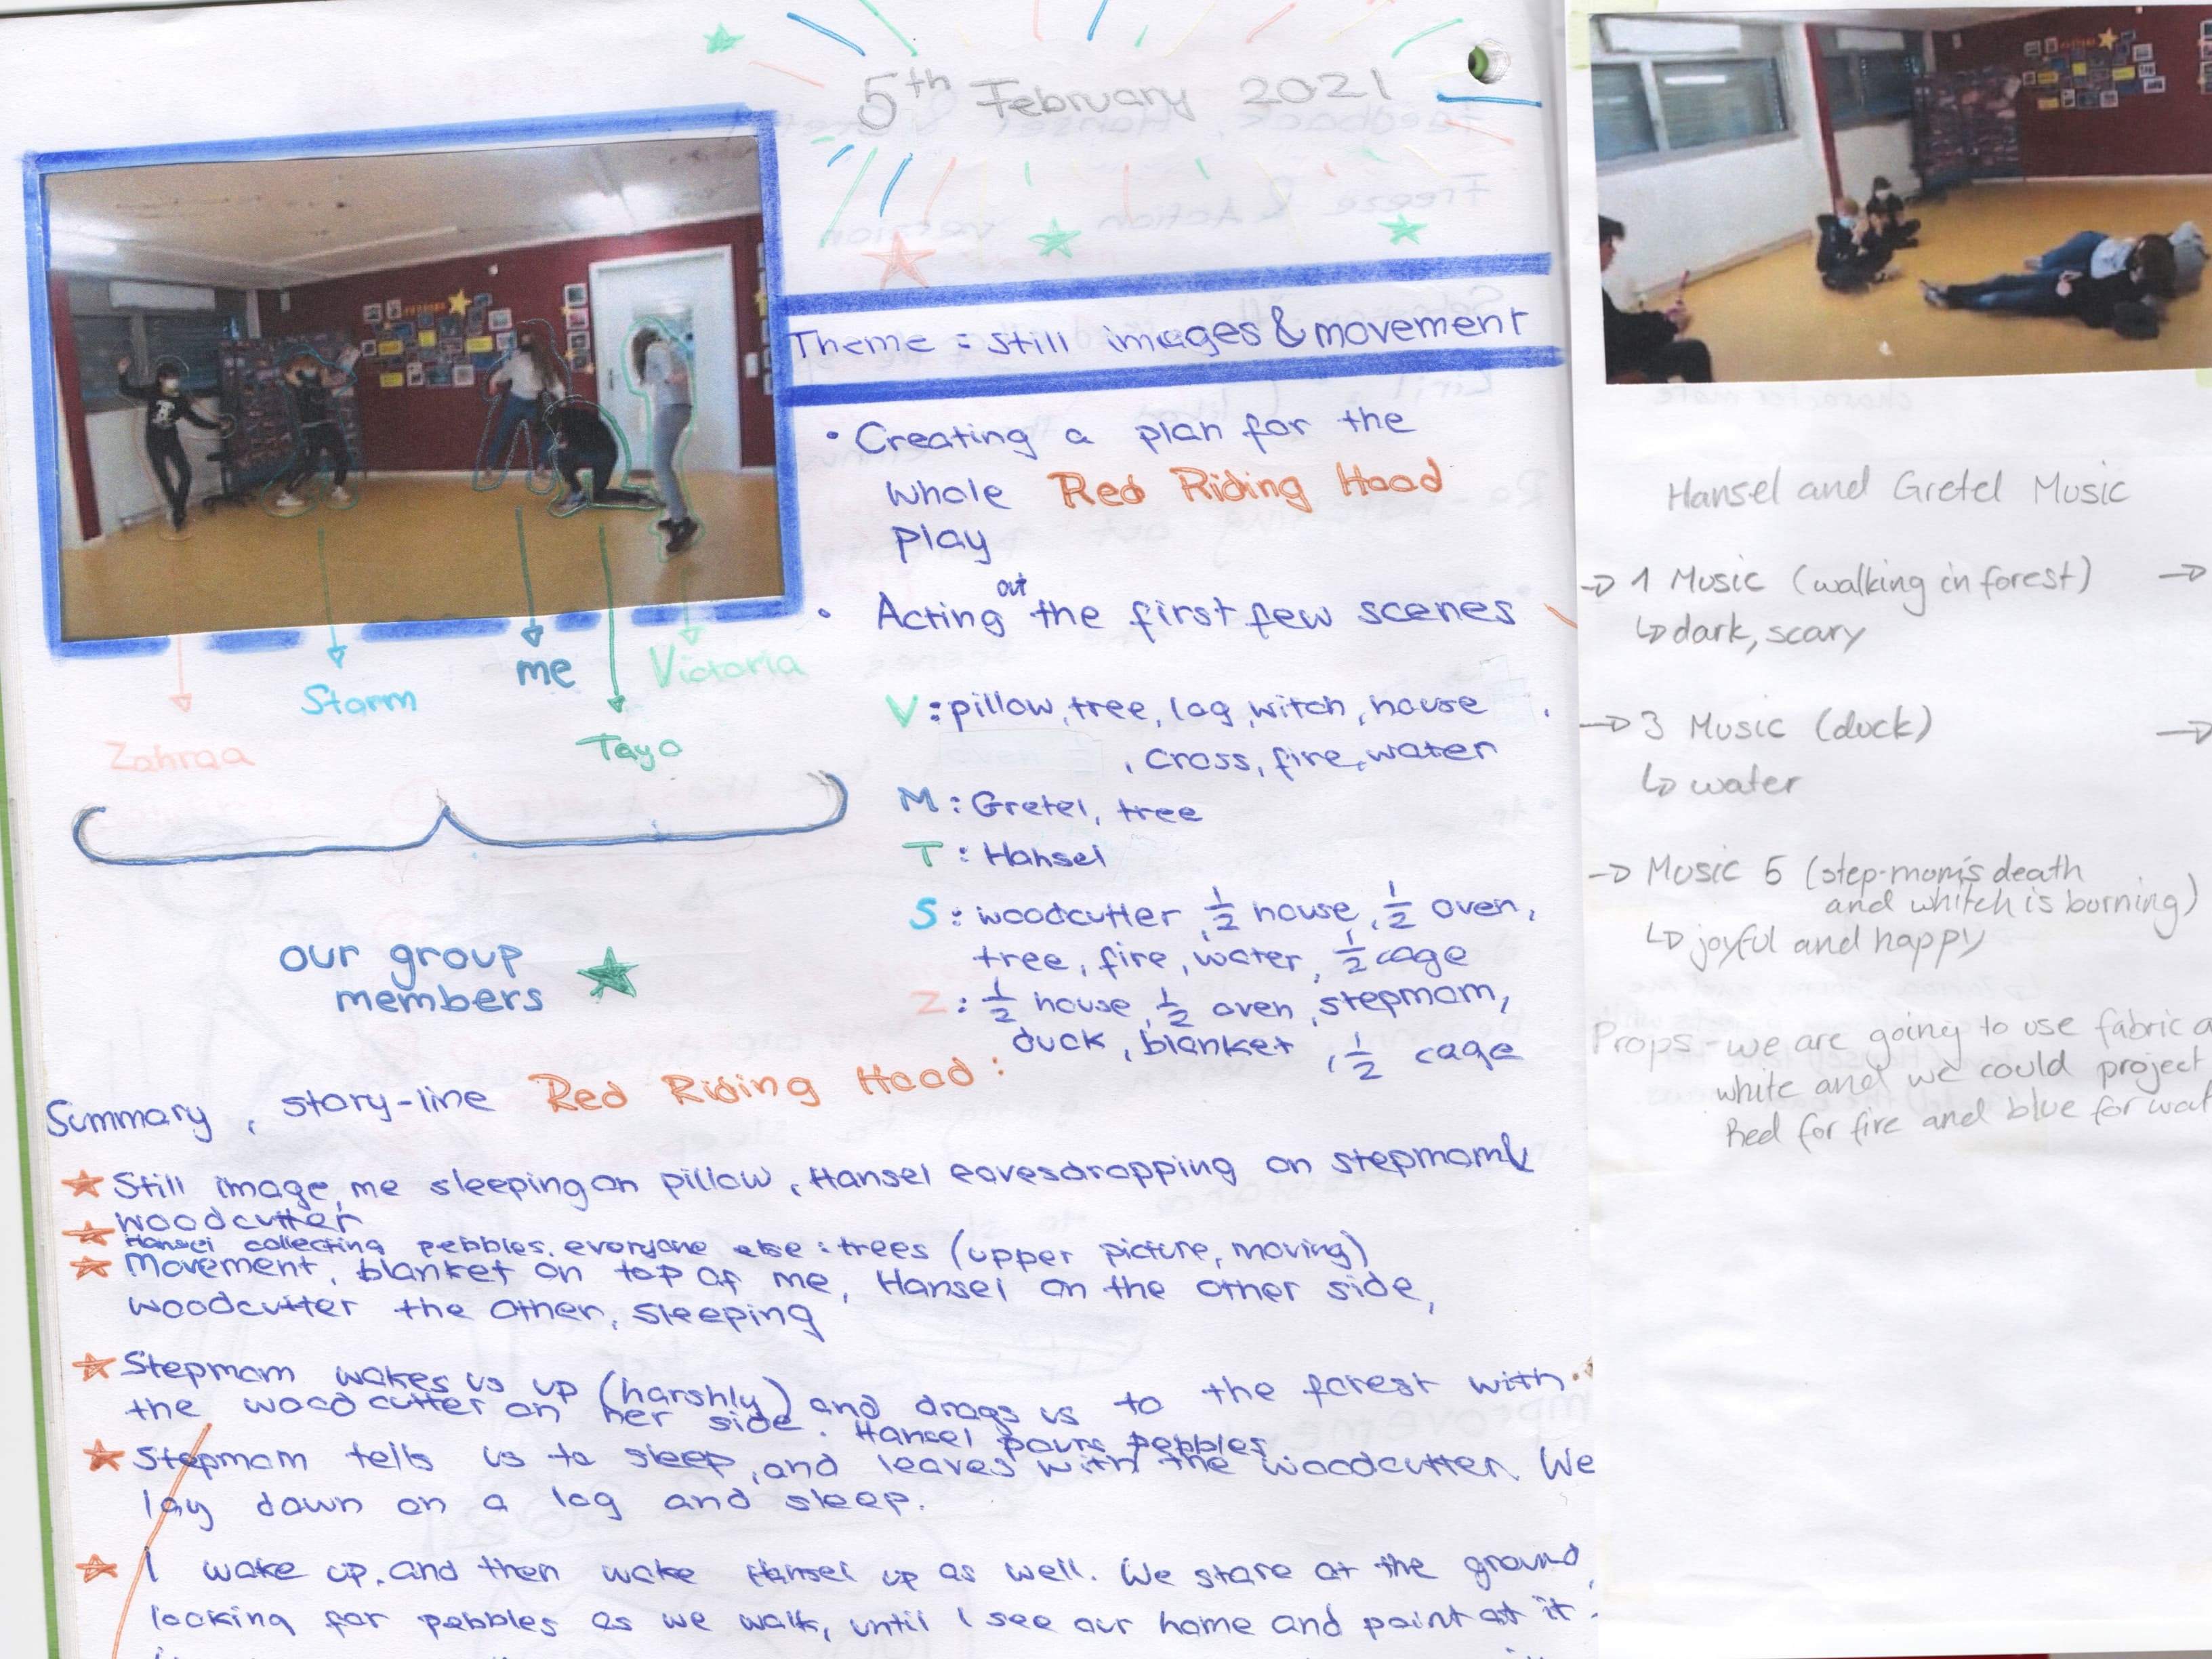 5th February 2021
Theme : still images & movement
• Creating a plan for the
whole Red Riding Hood
play
• Acting out the first few scenes
Zahraa
Storm
me
Tayo
Victoria
our group
members
V : pillow, tree, log, witch, house
, cross, fire, water
M : Gretel, tree
T : Hansel
S : woodcutter, 1/2 house, 1/2 oven,
tree, fire, water, 1/2 cage
Z : 1/2 house, 1/2 oven, stepmom,
duck, blanket, 1/2 cage
Summary, story-line Red Riding Hood :
Still image, me sleeping on pillow, Hansel eavesdropping on stepmom &
woodcutter
Hansel collecting pebbles, everyone else : trees (upper picture, moving)
Movement, blanket on top of me, Hansel on the other side,
woodcutter the other, sleeping
Stepmom wakes us up (harshly) and drags us to the forest with
the woodcutter on her side. Hansel pours pebbles
Stepmom tells us to sleep, and leaves with the woodcutter. We
lay down on a log and sleep.
I wake up, and then wake Hansel up as well. We stare at the ground,
looking for pebbles as we walk, until I see our home and point at it
Hansel and Gretel Music
→ 1 Music (walking in forest) →
↳ dark, scary
→ 3 Music (duck) →
↳ water
→ Music 5 (step-mom's death
and whitch is burning)
↳ joyful and happy
Props - we are going to use fabric
white and we could project
Red for fire and blue for wat